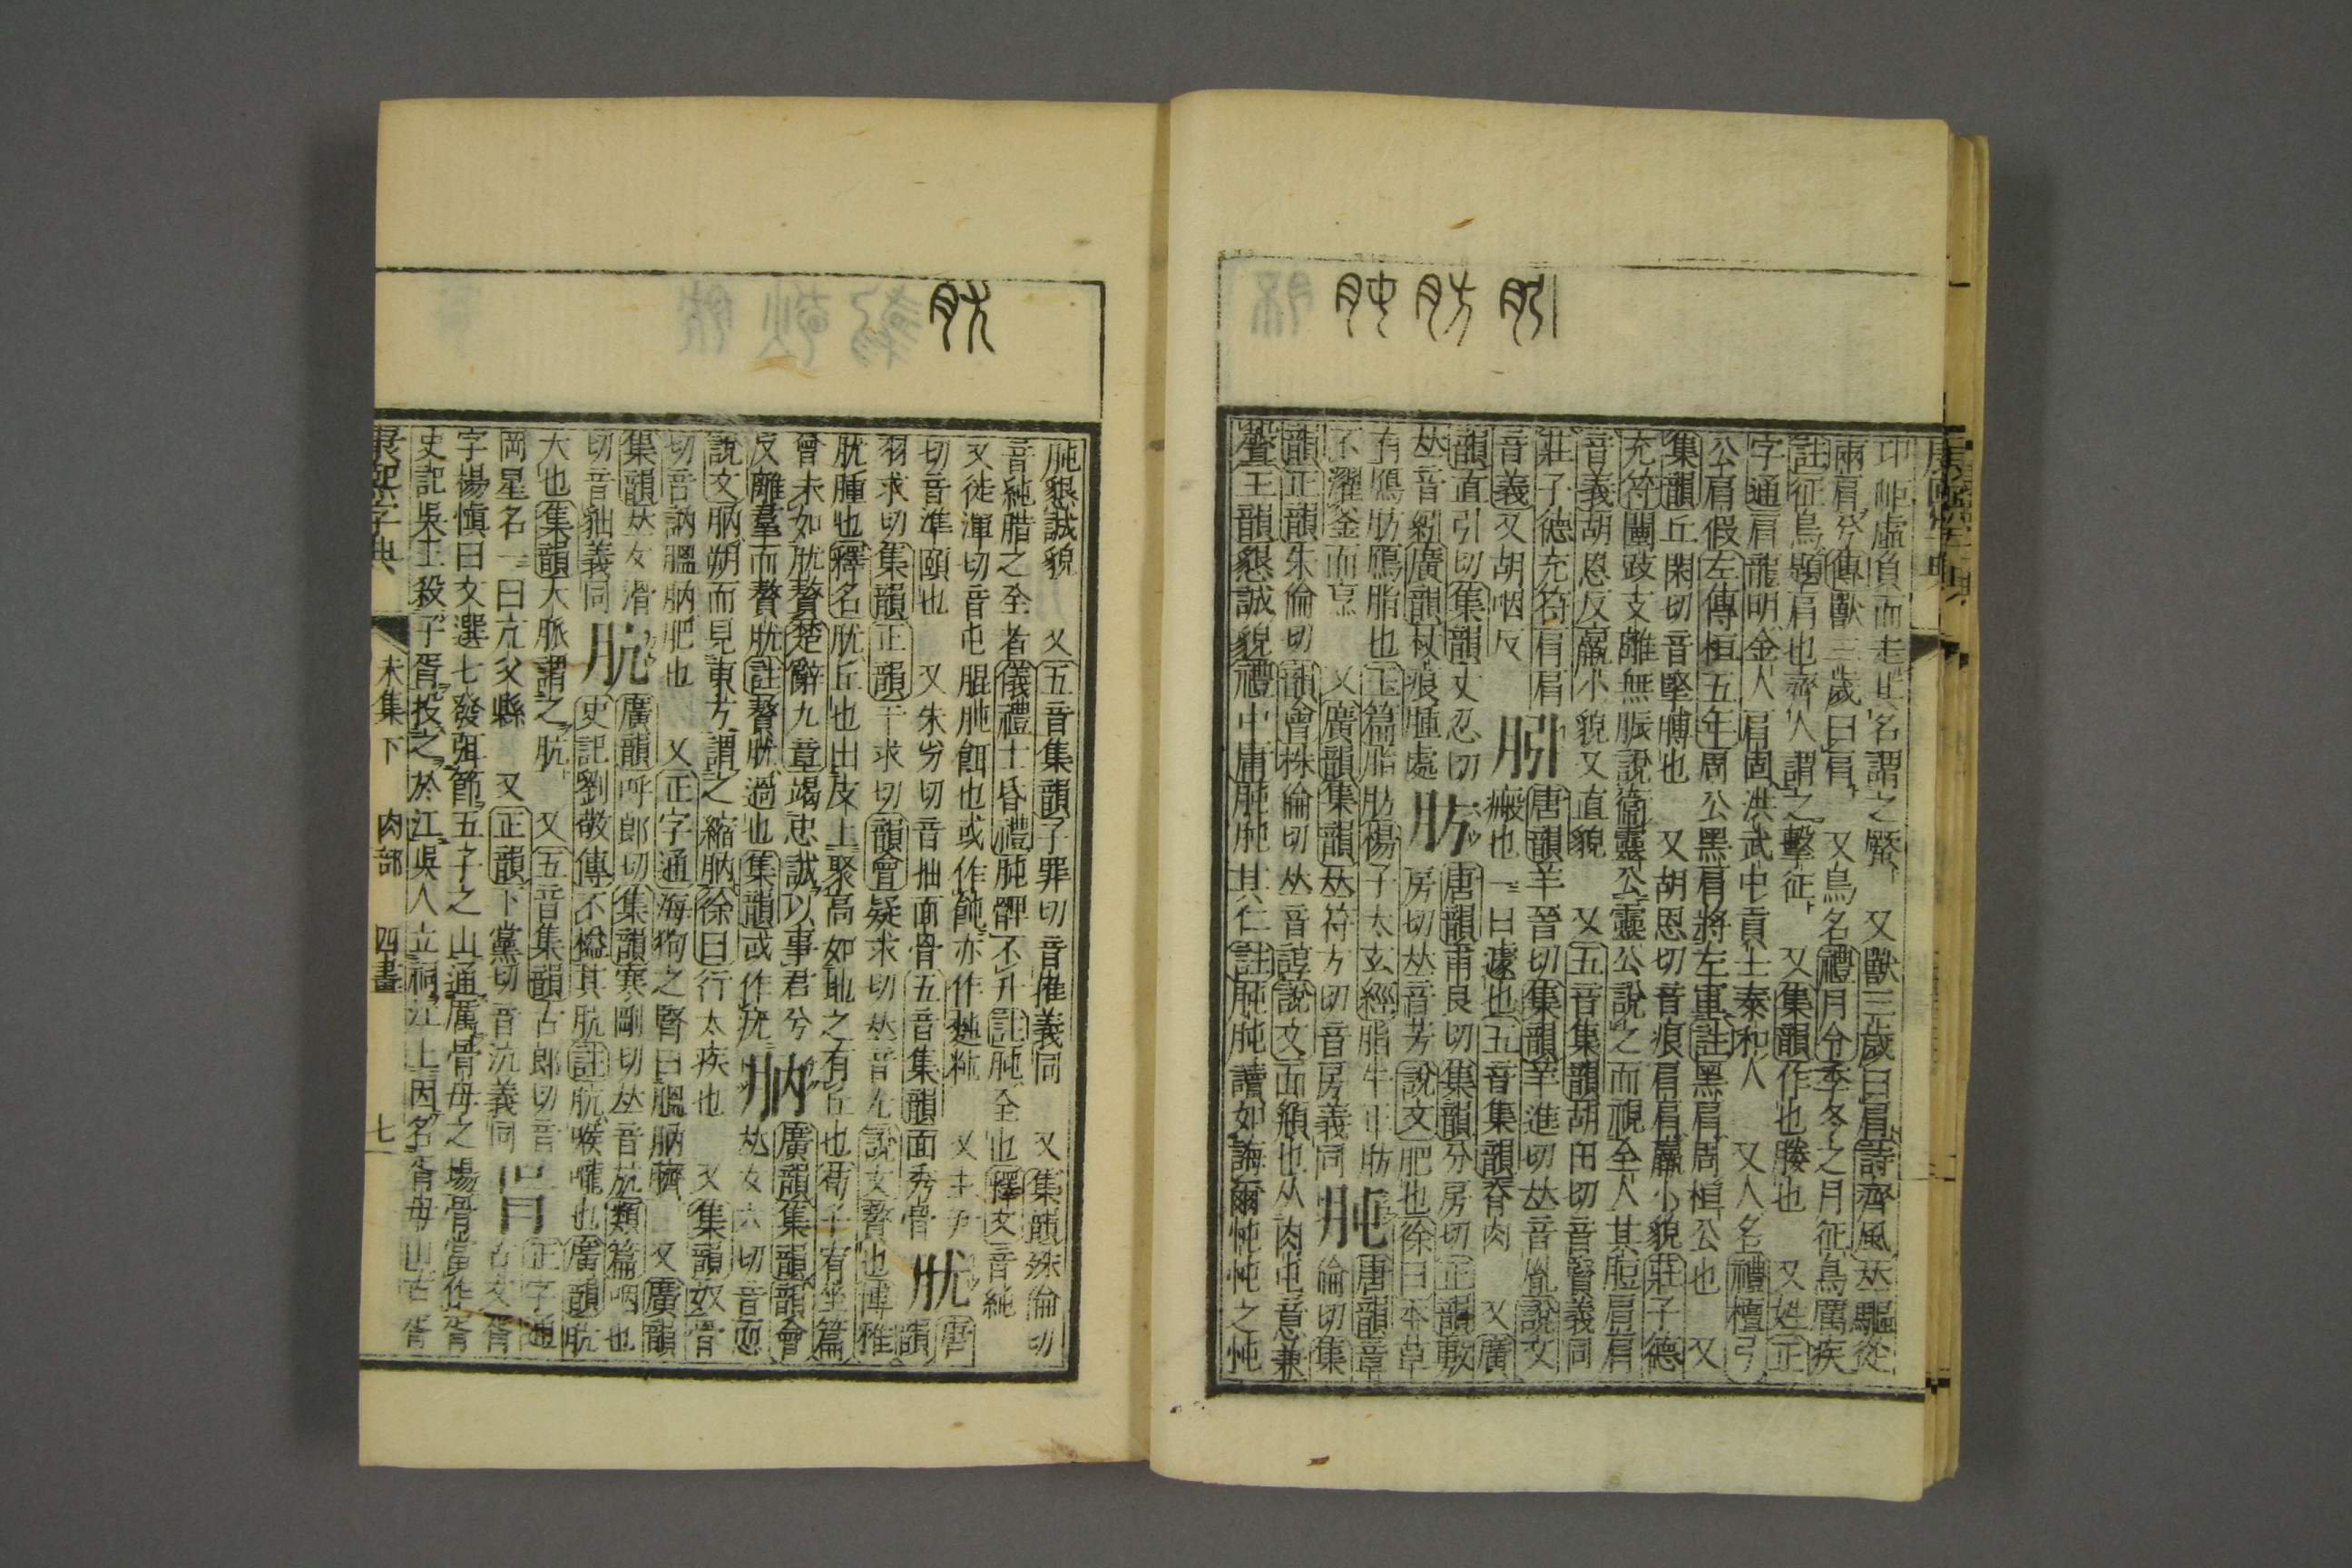 卭岠虛負而走其名謂之蟨 又獸三歲曰肩詩齊風𠀤驅從
兩肩兮傳獸三歲曰肩 又鳥名禮月令季冬之月征鳥厲疾
註征鳥題肩也齊人謂之擊征 又集韻作也勝也 又姓正
字通肩龍明金人肩固洪武中貢士泰和人 又人名禮檀弓
公肩假左傳桓五年周公黑肩將左軍註黑肩周桓公也 又
集韻丘閑切音堅膊也 又胡恩切音痕肩肩羸小貌莊子德
充符闉跂支離無脤說衞靈公靈公說之而視全人其脰肩肩
音義胡恩反羸小貌又直貌 又五音集韻胡田切音賢義同
莊子德充符肩肩 䏖 唐韻羊晉切集韻羊進切𠀤音胤說文
音義又胡咽反 瘢也一曰遽也五音集韻脊肉 又廣
韻直引切集韻丈忍切
𠀤音紖廣韻杖痕腫處 肪 唐韻甫良切集韻分房切正韻敷
房切𠀤音芳說文肥也徐曰本草
有鴈肪肪鴈脂也玉篇脂肪楊子太玄經脂牛正肪
不濯釜而烹 又廣韻集韻𠀤符方切音房義同 肫 唐韻章
倫切集
韻正韻朱倫切韻會株倫切𠀤音諄說文面頯也从肉屯意兼
聲玉韻懇誠貌禮中庸肫肫其仁註肫肫讀如誨爾忳忳之忳
肫懇誠貌 又五音集韻子罪切音摧義同 又集韻殊倫切
音純腊之全者儀禮士昏禮肫髀不升註肫全也釋文音純
又徒渾切音屯腽肫餌也或作飩亦作𪌋䊚 又主尹
切音準頤也 又朱劣切音拙面骨五音集韻面秀骨 肬 唐
韻
羽求切集韻正韻于求切韻會疑求切𠀤音尤說文贅也博雅
肬腫也釋名肬丘也出皮上聚高如地之有丘也荀子宥坐篇
曾未如肬贅楚辭九章竭忠誠以事君兮
反離羣而贅肬註贅肬過也集韻或作疣 肭 廣韻集韻韻會
𠀤女六切音恧
說文肭朔而見東方謂之縮肭徐曰行太疾也 又集韻奴骨
切音訥膃肭肥也 又正字通海狗之腎曰膃肭臍 又廣韻
集韻𠀤女滑
切音豽義同 肮 廣韻呼郎切集韻寒剛切𠀤音苀類篇咽也
史記劉敬傳不搤其肮註肮喉嚨也廣韻肮
大也集韻大脈謂之肮 又五音集韻古郎切音
岡星名一曰亢父縣 又正韻下黨切音沆義同 肻 正字通
古文胥
字楊愼曰文選七發弭節五子之山通厲骨母之場骨當作胥
史記吳王殺子胥投之於江吳人立祠江上因名胥母山古胥
康熙字典 未集下 肉部 四畫 七